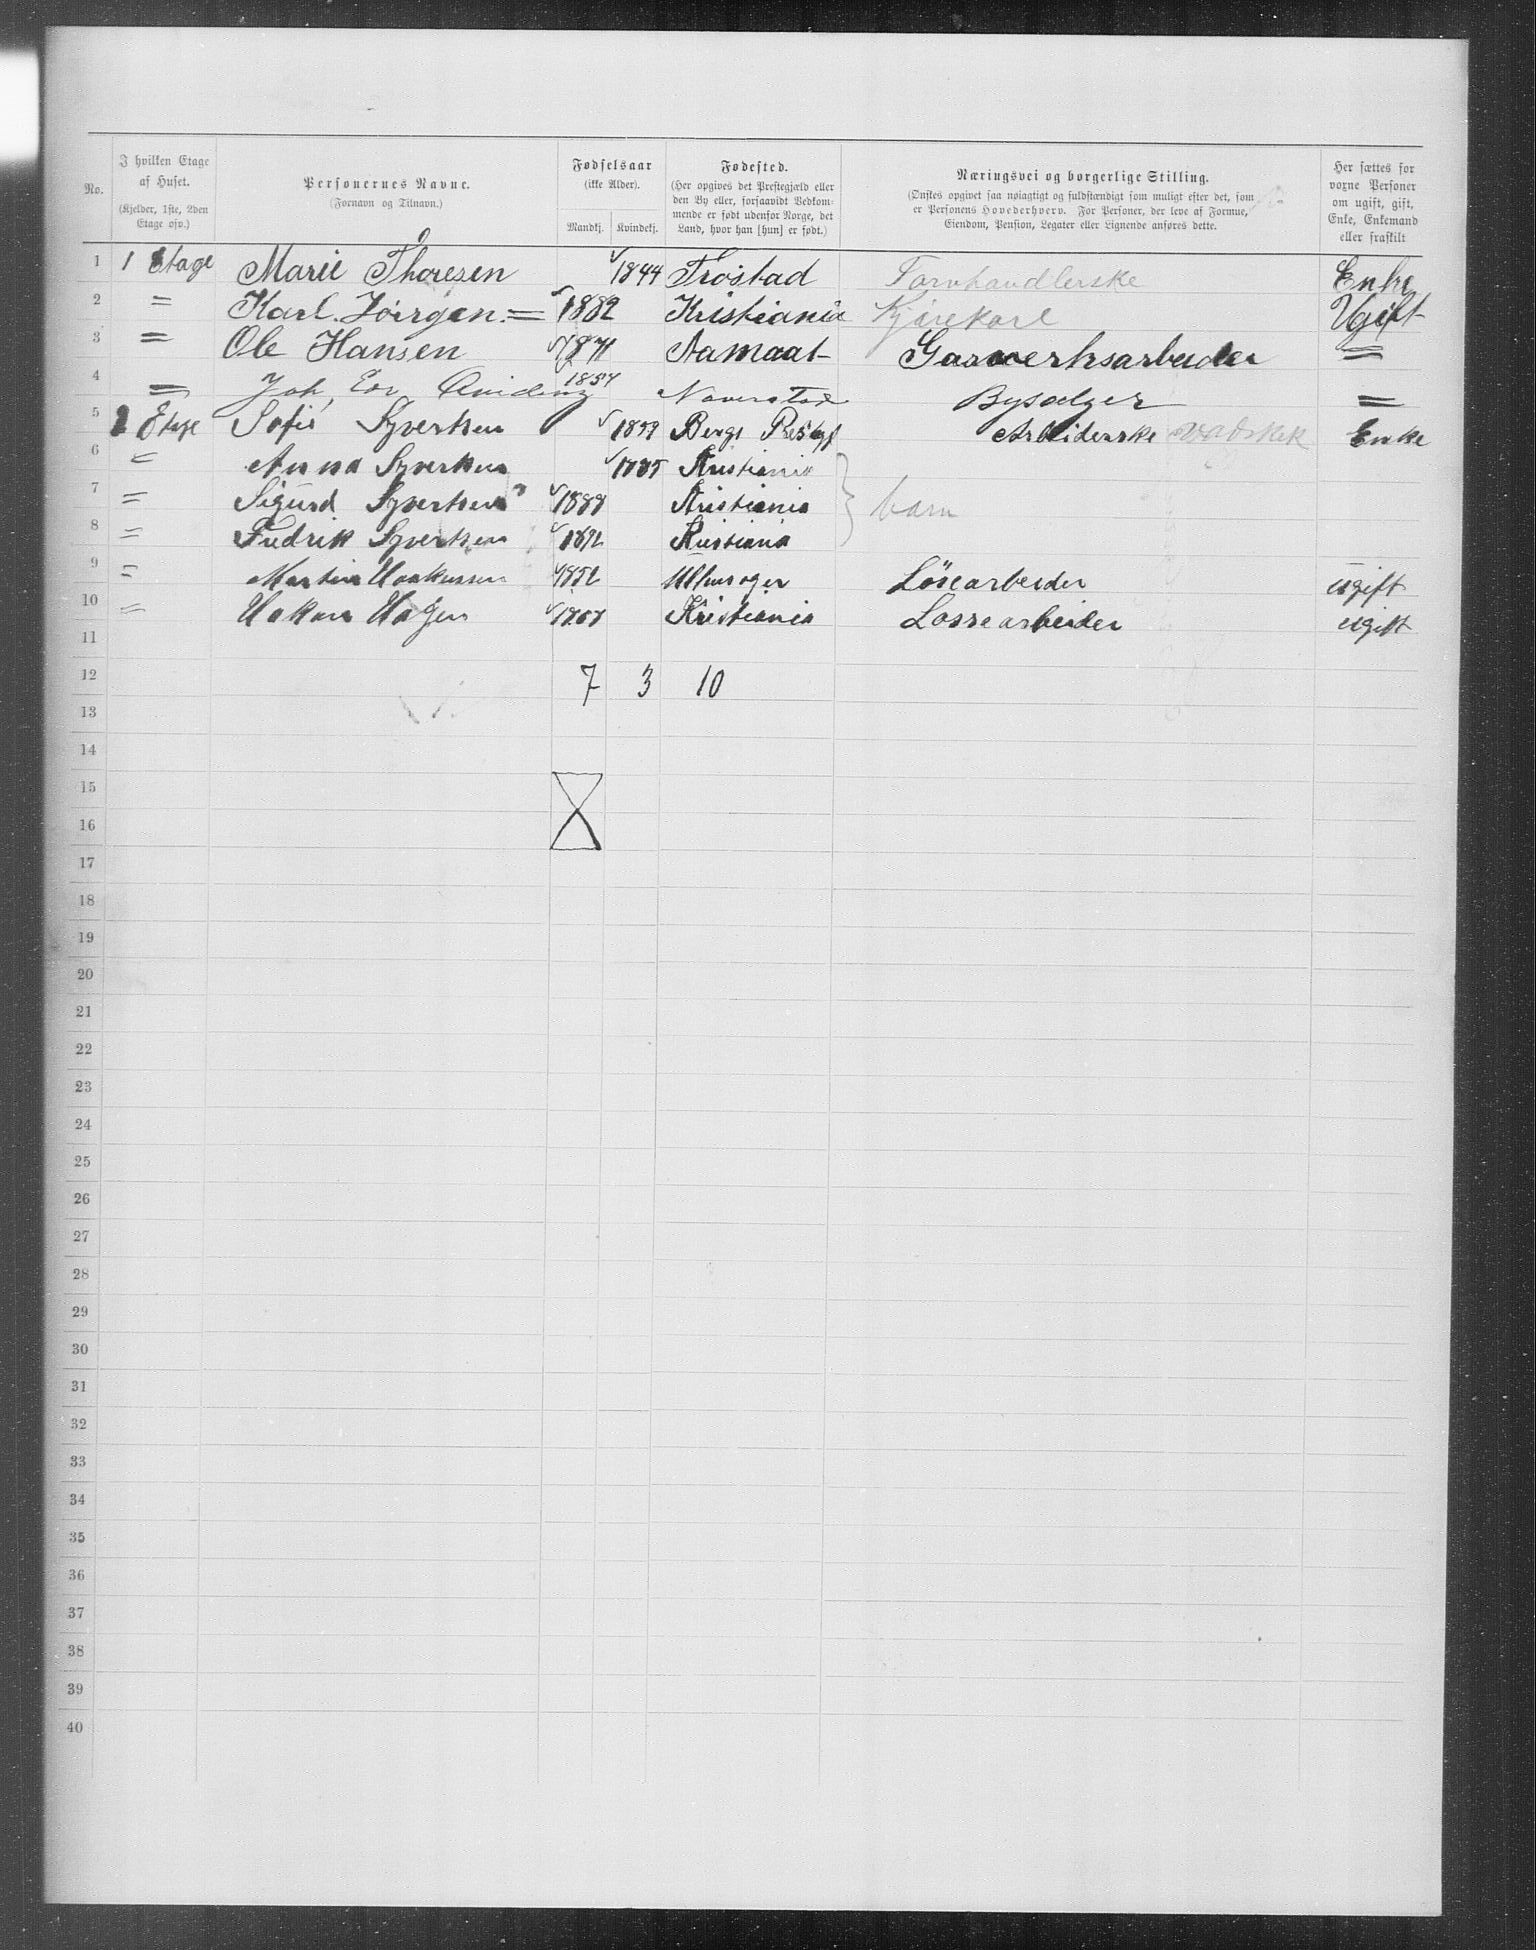 No.
I hvilken Etage af Huset. (Kjelder, 1ste, 2den Etage osv.)
Personernes Navne. (Fornavn og Tilnavn.)
Fødselsaar (ikke Alder). Mandkj. Kvindekj.
Fødested. (Her opgives det Prestegjæld eller den By eller, forsaavidt Vedkommende er født udenfor Norge, det Land, hvor han [hun] er født.)
Næringsvei og borgerlige Stilling. (Ønskes opgivet saa nøiagtigt og fuldstændigt som muligt efter det, som er Personens Hovederhverv. For Personer, der leve af Formue, Eiendom, Pension, Legater eller Lignende anføres dette.)
Her sættes for voxne Personer om ugift, gift, Enke, Enkemand eller fraskilt
1 1 Etage Marie Thoresen 1844 Trøstad Enke
2 = Karl. Jørgen. = 1882 Kristiania Kjørekarl Ugift
3 = Ole Hansen 1871 Aamaat Gasverksarbeider =
4 = Joh, Edv 1857 Bysælger =
5 Etage Sofie Syversen 1859 Bergs Arbeiderske Enke
6 = Anna Syversen 1885 Kristiania
7 = Sigurd Syversen 1888 Kristiania barn
8 = Fredrik Syversen 1892 Kristiania
9 = Martin Haakensen 1852 Løsearbeider ugift
10 = Hakon Hagen Kristiania Lossearbeider ugift
11
12 7 3 10
13
14
15
16
17
18
19
20
21
22
23
24
25
26
27
28
29
30
31
32
33
34
35
36
37
38
39
40